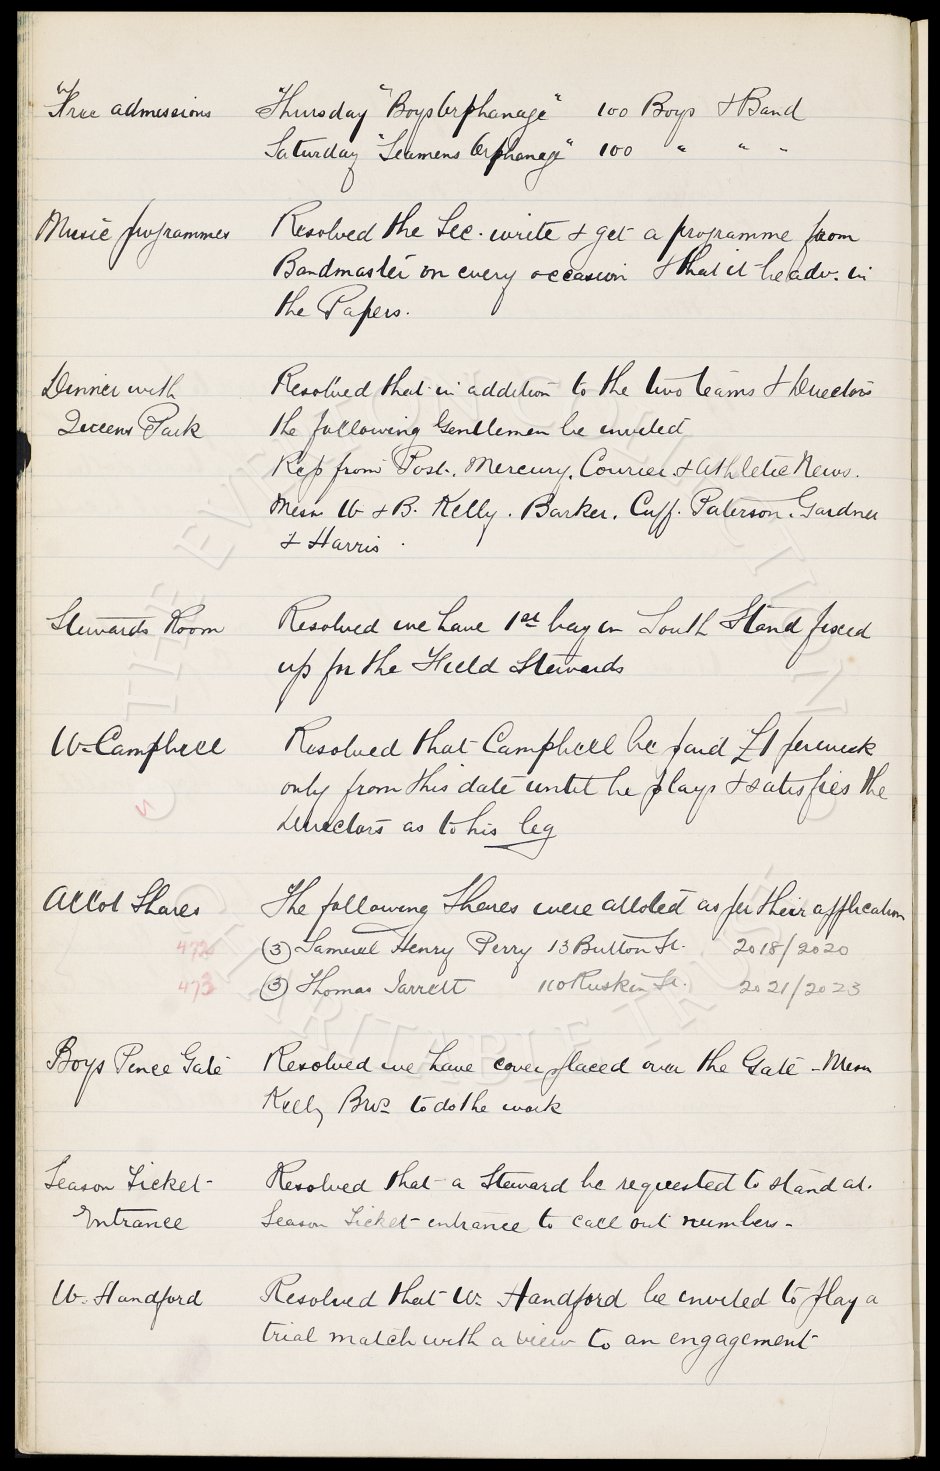 "Free admissions Thursday "Boys Orphanage" 100 Boys & Band
Saturday "Seamens Orphanage" 100 " " "
Music programmes Resolved the Sec. write & get a programme from
Bandmaster on every occasion & that it be adv. in
the Papers.
Dinner with Resolved that in addition to the two teams & Directors
Queens Park the following Gentlemen be invited
Rep from Post. Mercury. Courier & Athletic News.
Messrs W & B. Kelly. Barker. Cuff. Paterson. Gardner
& Harris.
Stewards Room Resolved we have 1st bay in South Stand fixed
up for the Field Stewards
W. Campbell Resolved that Campbell be paid £1 per week
only from this date until he plays & satisfies the
Directors as to his leg
Allot Shares The following Shares were alloted as per their application
472 (3) Samuel Henry Perry 13 Button St. 2018/2020
473 (3) Thomas Jarrett 110 Ruskin St. 2021/2023
Boys Pence Gate Resolved we have cover placed over the Gate - Messrs
Kelly Bros. to do the work
Season Ticket Resolved that a Steward be requested to stand at.
Entrance Season Ticket entrance to call out numbers -
W. Handford Resolved that W. Handford be invited to play a
trial match with a view to an engagement
THE EVERTON COLLECTION
CHARITABLE TRUST